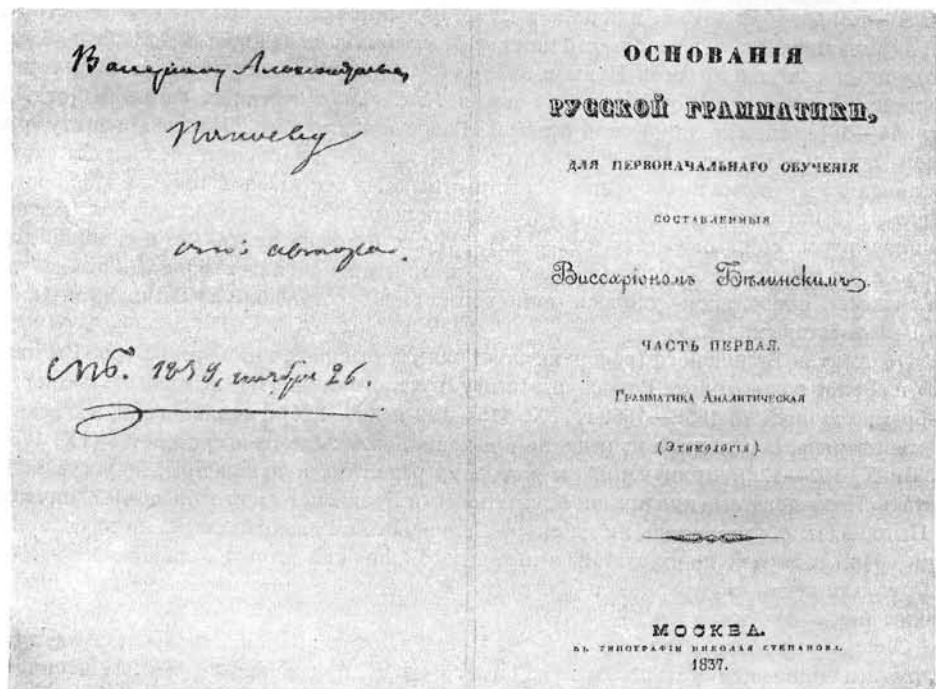 Валериану Александровичу
Панаеву
отъ автора.
СПб. 1839, ноября 26.
ОСНОВАНІЯ
РУССКОЙ ГРАММАТИКИ,
ДЛЯ ПЕРВОНАЧАЛЬНАГО ОБУЧЕНІЯ
СОСТАВЛЕННЫЯ
Виссаріономъ Бѣлинскимъ.
ЧАСТЬ ПЕРВАЯ.
Грамматика Аналитическая
(Этимологія)
МОСКВА.
ВЪ ТИПОГРАФІИ НИКОЛАЯ СТЕПАНОВА.
1837.